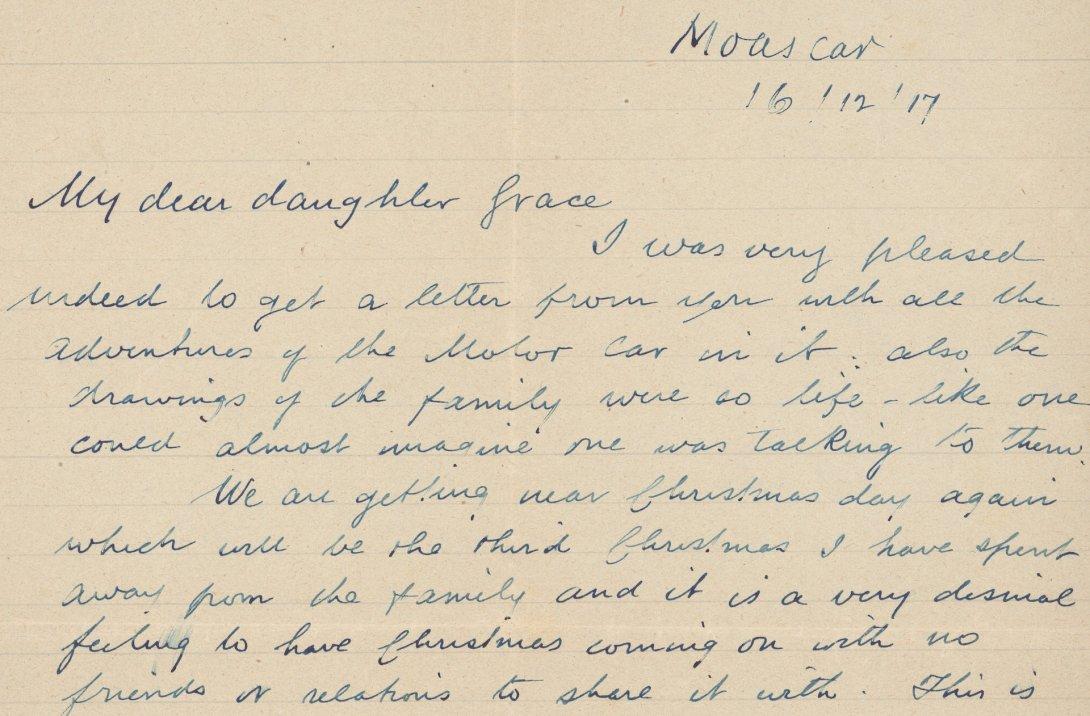 Moascar
16/12/17
My dear daughter Grace
I was very pleased
indeed to get a letter from you with all the
adventures of the Motor Car in it. also the
drawings of the family were so life-like one
could almost imagine one was talking to them.
We are getting near Christmas day again
which will be the third Christmas I have spent
away from the family and it is a very dismal
feeling to have Christmas coming on with no
friends or relations to share it with. This is